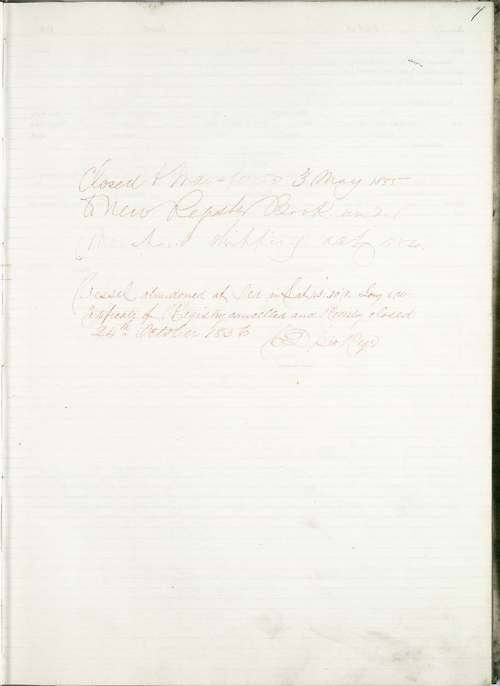 7
Closed & transferred 3 May 1855
to New Register Book under
Merchant Shipping Act 1854
Vessel abandoned at Sea in Lat
Certificate of Registry cancelled and Registry closed
24th October 1856